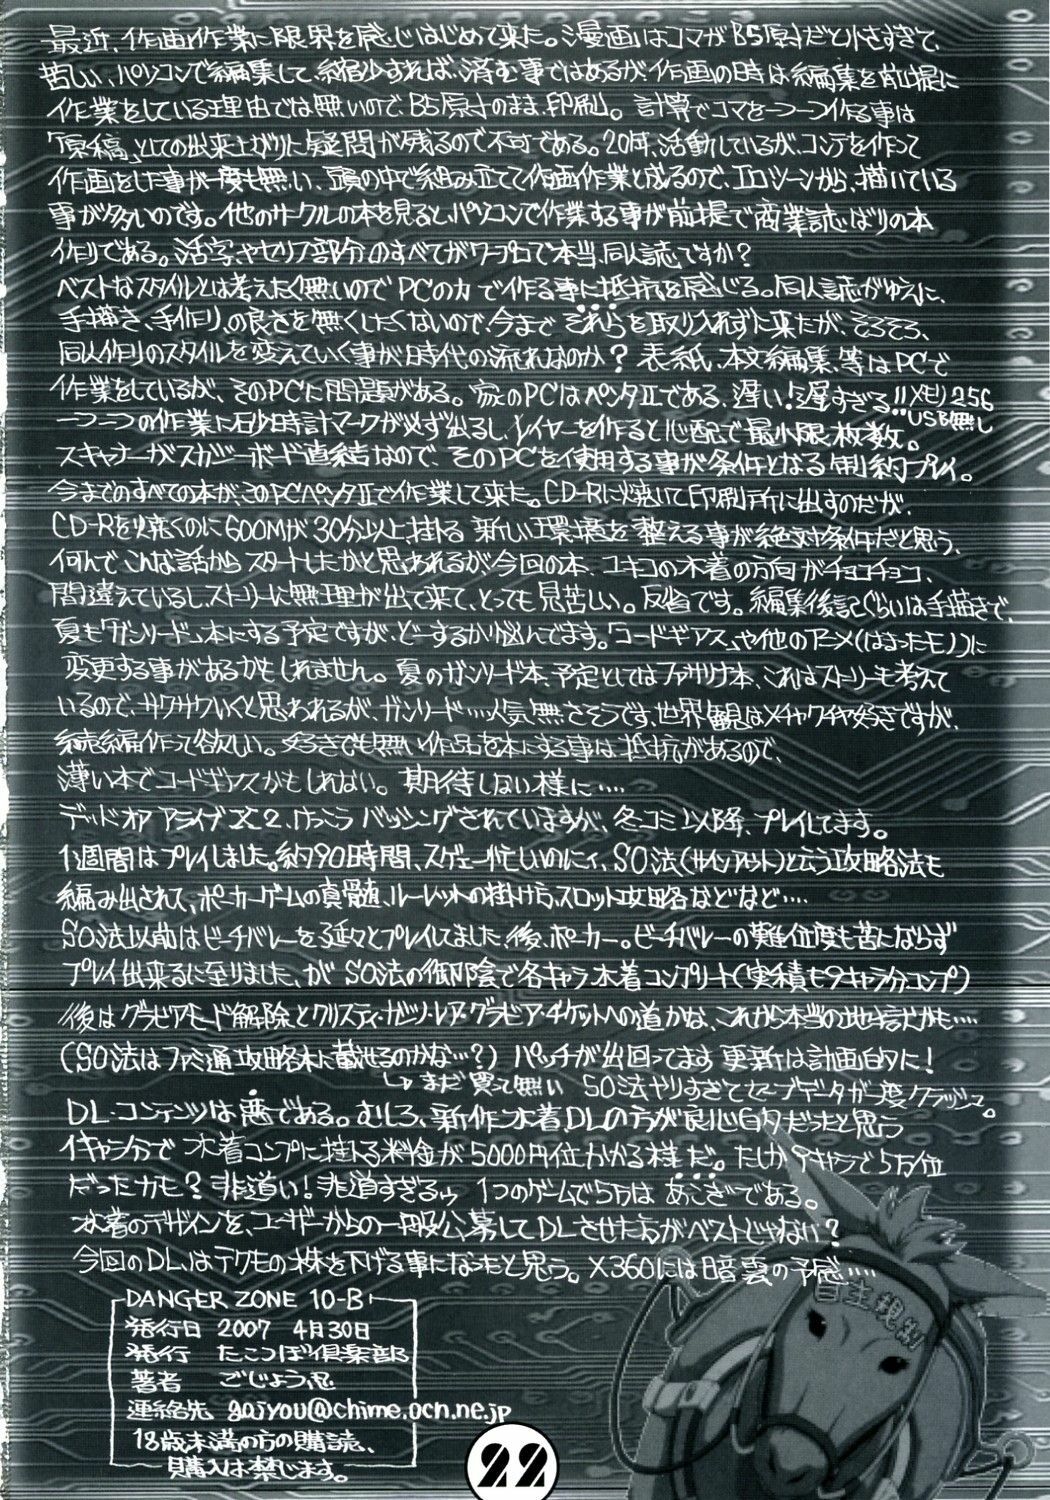 最近、作画作業に限界を感じはじめて来た。漫画はコマがB5原寸だと小さすぎて、
苦しい、パソコンで編集して、縮少すれば、済む事ではあるが、作画の時は編集を前提に
作業をしている理由では無いので、B5原寸のまま、印刷。計算でコマを一つ一つ作る事は
「原稿」としての出来上がりに疑問が残るので不可である。20年、活動しているが、コンテを作って
作画をした事が一度も無い、頭の中で組み立てて作画作業と成るので、エロシーンから、描いている
事が多いのです。他のサークルの本を見ると、パソコンで作業する事が前提で商業誌ばりの本
作りである。活字やセリフ部分のすべてがワープロで本当、同人誌ですか？
ベストなスタイルとは考えたく無いのでPCの力で作る事に抵抗を感じる。同人誌がゆえに、
手描き、手作り、の良さを無くしたくないので、今までそれらを取り入れずに来たが、そろそろ、
同人作りのスタイルを変えていく事が時代の流れなのか？表紙、本文編集、等はPCで
作業をしているが、そのPCに問題がある。家のPCはペンタⅡである、遅い！遅すぎる!!メモリ256
USB無し
一つ一つの作業に砂時計マークが必ず出るし、レイヤーを作ると心配で最小限枚数。
スキャナーがスカジーボード直結なので、そのPCを使用する事が条件となる制約プレイ。
今までのすべての本が、このPCペンタⅡで作業して来た。CD-Rに焼いて印刷所に出すのだが、
CD-Rを焼くのに600Mが30分以上掛る 新しい環境を整える事が絶対条件だと思う、
何んで、こんな話からスタートしたかと思われるが今回の本、ユキコの水着の方向がチョコチョコ、
間違えているし、ストーリーに無理が出て来て、とっても見苦しい。反省です。編集後記ぐらいは手描きで、
夏も「ガンソード」本にする予定ですが、どーするか悩んでます。「コードギアス」や他のアニメ(はまったモノ)に
変更する事があるかもしれません。夏のガンソード本、予定としてはファサリナ本、これはストーリーも考えて
いるので、サクサクいくと思われるが、ガンソード‥‥人気、無さそうです、世界観はメチャクチャ好きですが、
続編作って欲しい。好きでも無い作品を本にする事は抵抗があるので、
薄い本でコードギアスかもしれない。期待しない様に‥‥
デッドオアアライブX2、けっこうバッシングされていますが、冬コミ以降、プレイしてます。
1週間はプレイしました。約90時間、スゲェー忙しいのにィ、SO法(サインアウト)と云う攻略法も
編み出されて、ポーカーゲームの真髄、ルーレットの掛け方、スロット攻略などなど‥‥
SO法以前はビーチバレーを延々とプレイしてました後、ポーカー。ビーチバレーの難易度も苦にならず
プレイ出来るに至りました、が SO法の御陰で各キャラ水着コンプリート(実積も9キャラ分コンプ)
後はグラビアモード解除とクリスティ・ガゼッソ・レア・グラビア・チケットへの道かな、これから本当の地獄だかも‥‥
(SO法はファミ通攻略本に載せるのかな‥？) パッチが出回ってます 更新は計画的に！
↳まだ買って無い SO法やりすぎてセーブデータが1度クラッシュ。
DL・コンテンツは悪である。むしろ、新作水着DLの方が良心的だったと思う
1キャラ分で水着コンプに掛る料金が5000円位かかる様だ。たしか9キャラで5万位
だったカモ？非道い！非道すぎるッ 1つのゲームで5万はあこぎである。
水着のデザインを、ユーザーからの一般公募してDLさせた方がベストじゃない？
今回のDLはテクモの株を下げる事になったと思う。X360には暗雲の予感‥‥
自主規制
DANGER ZONE 10-B
発行日 2007 4月30日
発行 たこつぼ倶楽部
著者 ごじょう忍
連絡先 gojyou@chime.ocn.ne.jp
18歳未満の方の購読、
購入は禁じます。
22